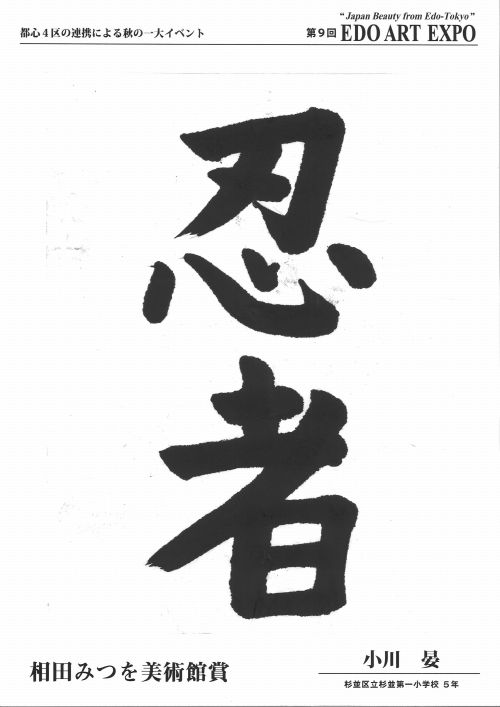 "Japan Beauty from Edo-Tokyo"
都心4区の連携による秋の一大イベント
第9回 EDO ART EXPO
忍者
相田みつを美術館賞
小川 晏
杉並区立杉並第一小学校 5年